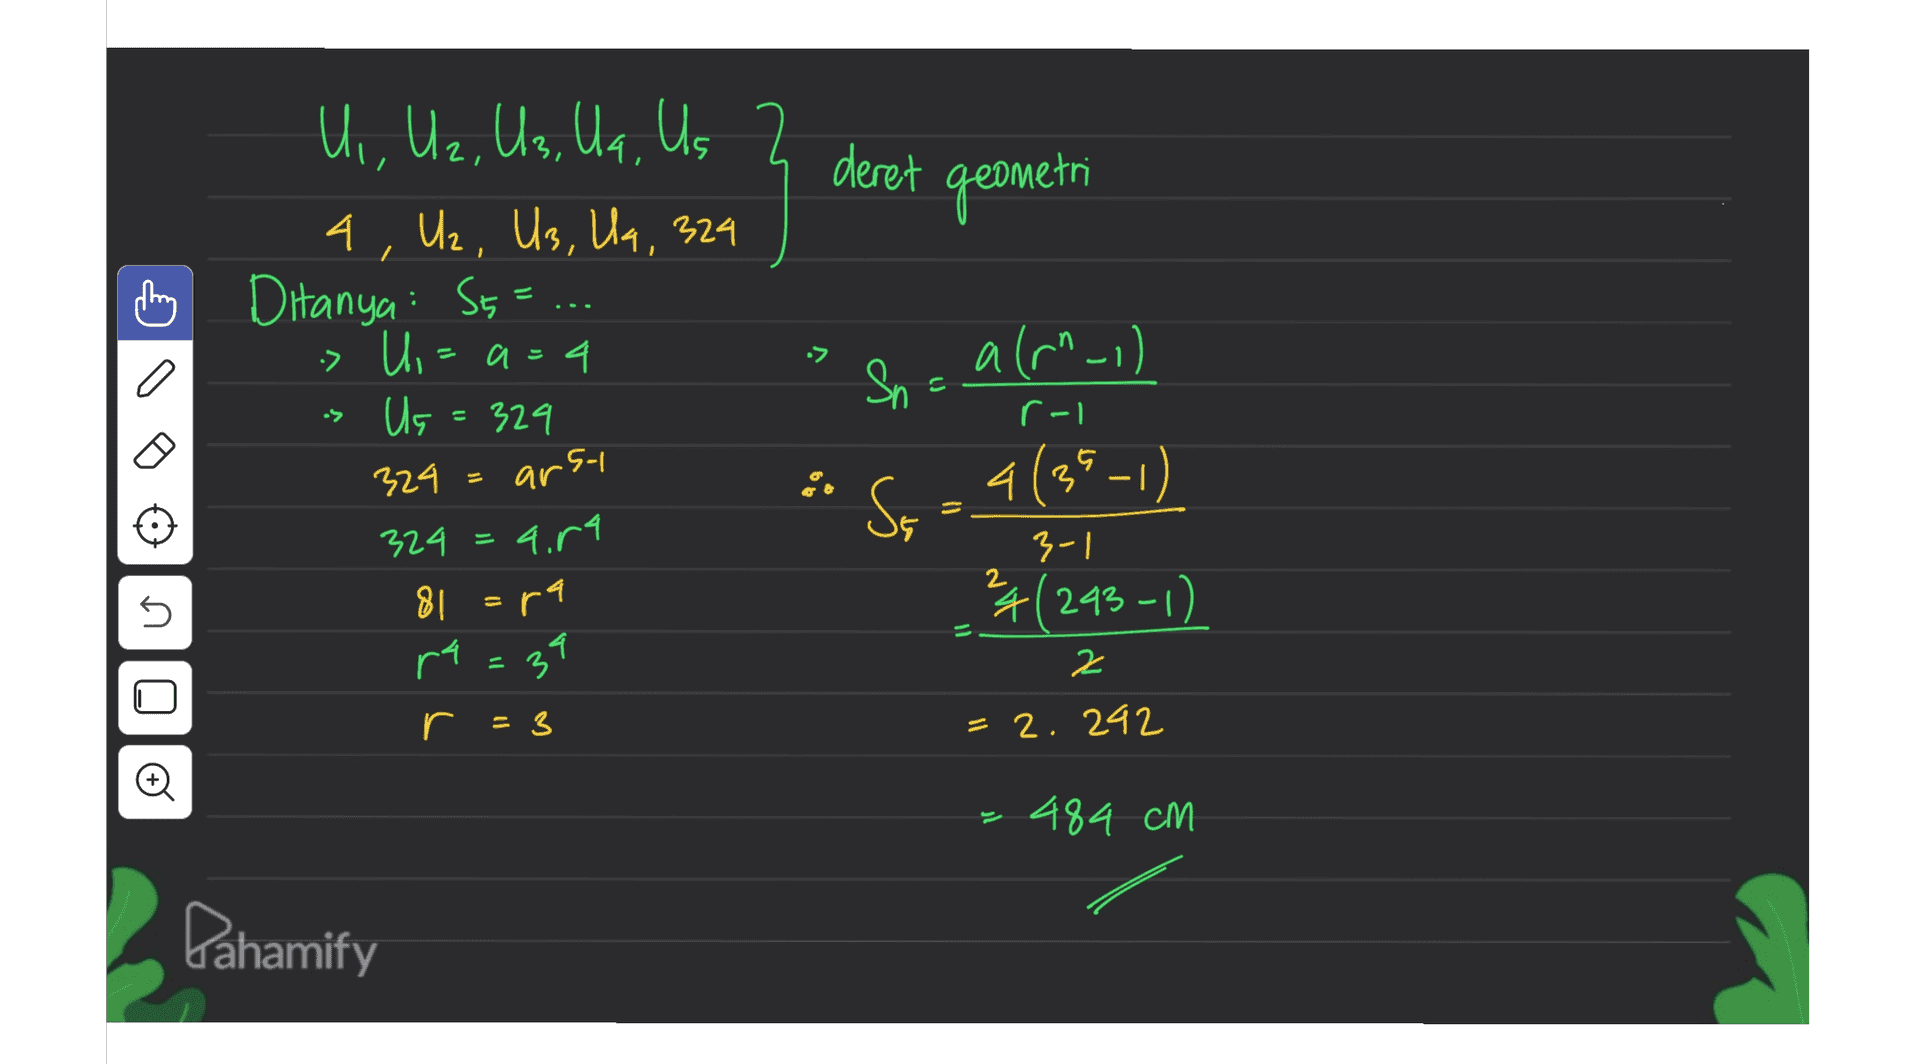 U₁, U₂, U₃, U₄, U₅ } deret geometri
4, U₂, U₃, U₄, 324
Ditanya : S₅ = ...
·> U₁ = a = 4
·> U₅ = 324
324 = ar⁵⁻¹
324 = 4.r⁴
81 = r⁴
r⁴ = 3⁴
r = 3
·> Sn = a(rⁿ-1) / r-1
∴ S₅ = 4(3⁵-1) / 3-1
= ²4(243-1) / 2
= 2. 242
= 484 cm
Pahamify